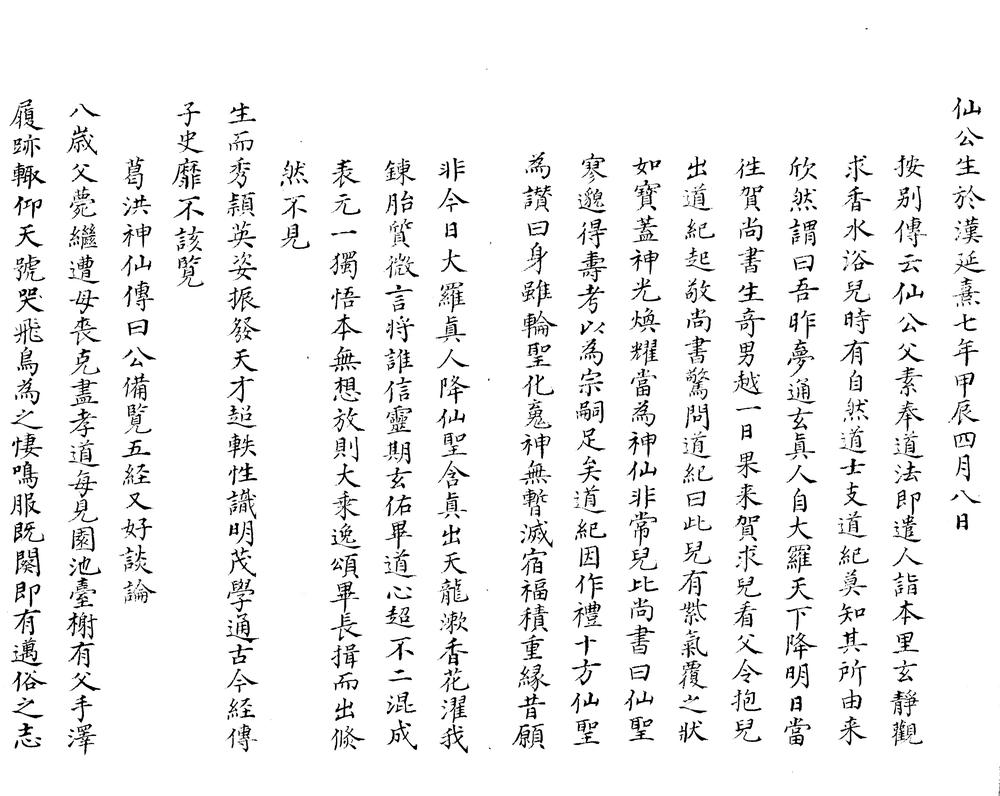 仙公生於漢延熹七年甲辰四月八日
按别傳云仙公父素奉道法即遣人詣本里玄靜觀
求香水浴兒時有自然道士支道紀莫知其所由来
欣然謂曰吾昨夢通玄真人自大羅天下降明日當
往賀尚書生奇男越一日果来賀求兒看父令抱兒
出道紀起敬尚書驚問道紀曰此兒有紫氣覆之狀
如寶蓋神光煥耀當為神仙非常兒比尚書曰仙聖
寥邈得壽考以為宗嗣足矣道紀因作禮十方仙聖
為讃曰身雖輪聖化䰟神無暫滅宿福積重縁昔願
非今日大羅眞人降仙聖含眞出天龍漱香花濯我
錬胎質微言将誰信靈期玄佑畢道心超不二混成
表元一獨悟本無想放則大乘逸頌畢長揖而出倐
然不見
生而秀頴英姿振發天才超軼性識明茂學通古今経傳
子史靡不該覧
葛洪神仙傳曰公備覧五経又好談論
八歳父薨繼遭母喪克盡孝道每見園池臺榭有父手澤
履跡輙仰天號哭飛鳥為之悽鳴服既闋即有邁俗之志